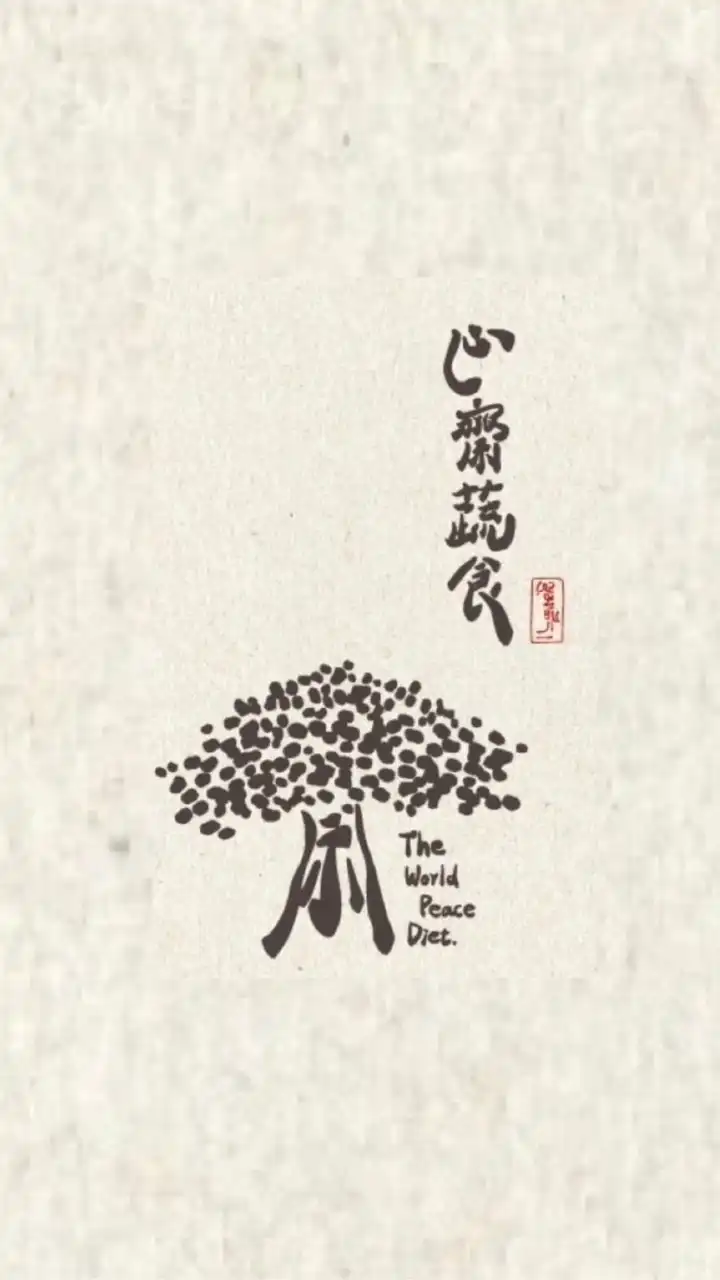 心齋蔬食
The
World
Peace
Diet.